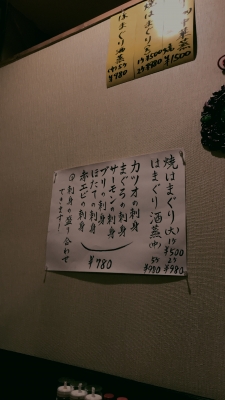 焼はまぐり(大)1ケ¥500
2ケ¥980
はまぐり酒蒸(中)5ケ¥980
カツオの刺身
まぐろの刺身
サーモンの刺身
ブリの刺身
ほたての刺身
赤エビの刺身
¥780
刺身の盛り合わせ
できます!
焼はまぐり
¥1500
はまぐり酒蒸
¥980